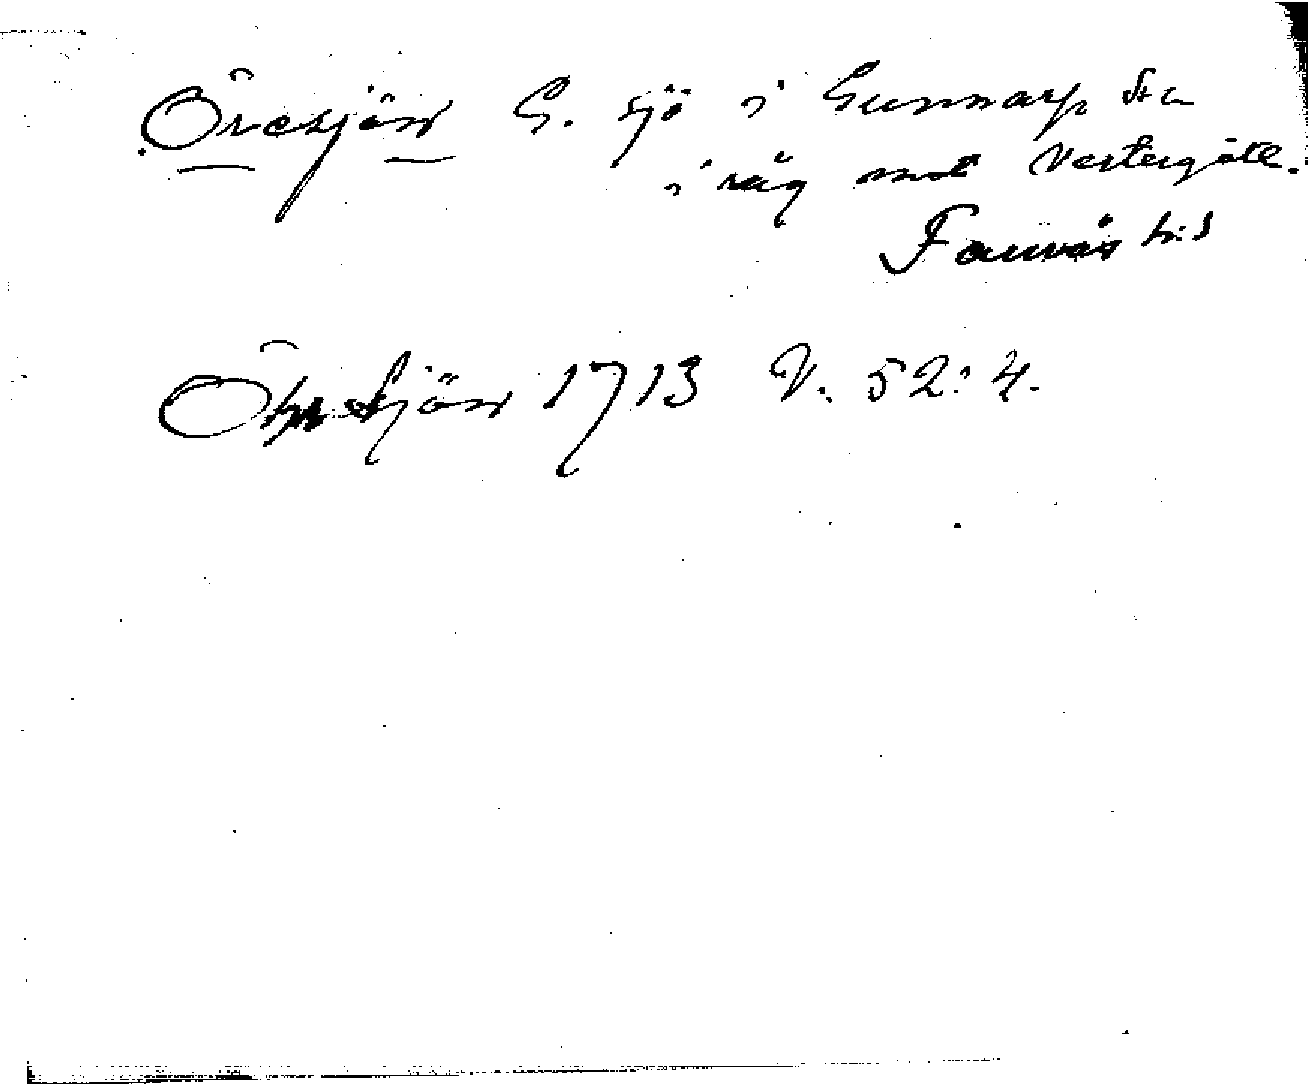 Öresjön G. sjö i Gunnarp sn
i räg mot Vestergötl.
Faurås hd
Öhrsjön 1713 V. 52:4.